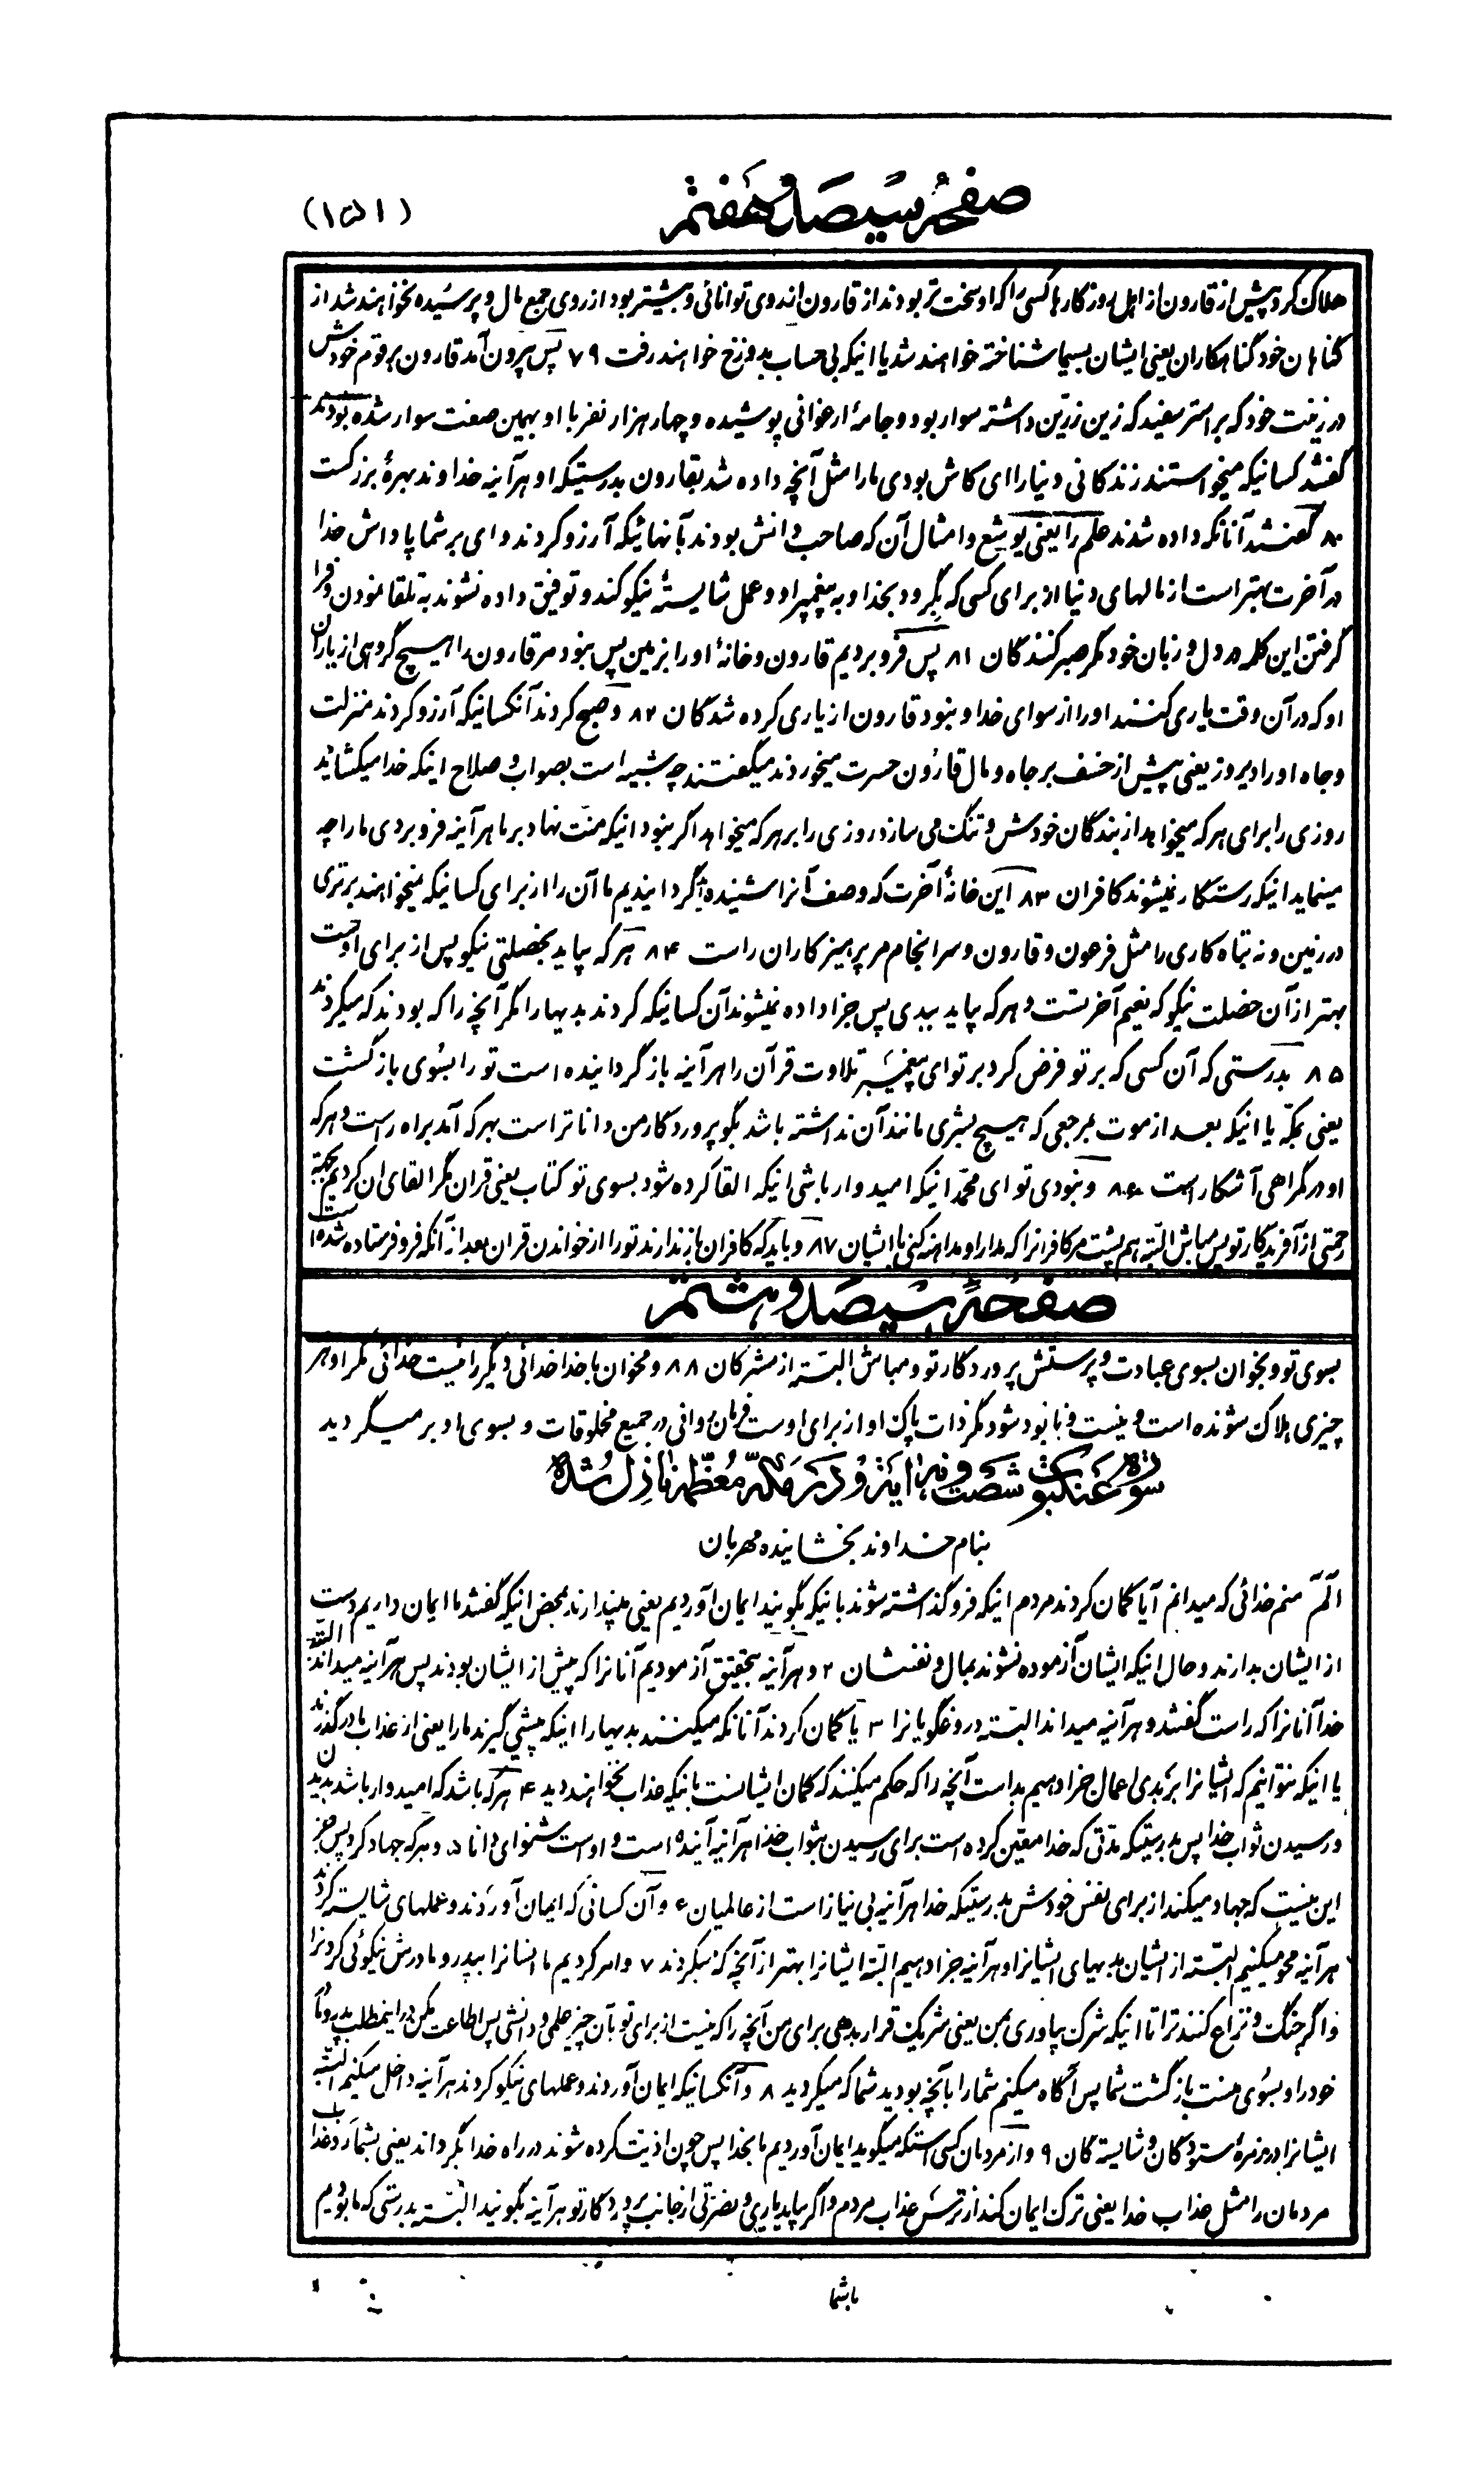 صفحه سیصد و هفتم
(۱۵۱)
هلاک کرد پیش از قارون از اهل روزگارها کسی را که او سخت تر بودند از قارون از روی توانائی و بیشتر بود از روی جمع مال و پرسیده نخواهند شد از
گناهان خود گناهکاران یعنی ایشان بسیما شناخته خواهند شد یا اینکه بی حساب بدوزخ خواهند رفت ۷۹ پس بیرون آمد قارون بر قوم خودش
در زینت خود که بر استر سفید که زین زرّین داشته سوار بود و جامهٔ ارغوانی پوشیده و چهار هزار نفر با او بهمین صفت سوار شده بودند
گفتند کسانیکه میخواستند زندکانی دنیا را ای کاش بودی ما را مثل آنچه داده شد بقارون بدرستیکه او هرآینه خداوند بهرهٔ بزرکست
۸۰ گفتند آنانکه داده شدند علم را یعنی یوشع و امثال آن که صاحب دانش بودند بآنهائیکه آرزو کردند وای بر شما پاداش خدا
در آخرت بهتر است از مالهای دنیا از برای کسی که بگرود بخدا و به پیغمبر او و عمل شایستهٔ نیکو کند و توفیق داده نشوند به تلقا نمودن و فرا
گرفتن این کلمه در دل و زبان خود مگر صبر کنندگان ۸۱ پس فرو بردیم قارون و خانهٔ او را بزمین پس نبود مر قارون را هیچ گروهی از یاران
او که در آن وقت یاری کنند او را از سوای خدا و نبود قارون از یاری کرده شدگان ۸۲ و صبح کردند آنکسانیکه آرزو کردند منزلت
و جاه او را دیروز یعنی پیش از خسف بر جاه و مال قارون حسرت میخوردند میگفتند چه شبیه است بصواب و صلاح اینکه خدا میکشاید
روزی را برای هر که میخواهد از بندگان خودش و تنگ می سازد روزی را بر هر که میخواهد اگر نبود اینکه منت نهاد بر ما هرآینه فرو بردی ما را چه
مینماید اینکه رستگار نمیشوند کافران ۸۳ این خانهٔ آخرت که وصف آنرا شنیدهٔ گردانیدیم ما آن را از برای کسانیکه نمیخواهند برتری
در زمین و نه تباه کاری را مثل فرعون و قارون و سرانجام مر پرهیزکاران راست ۸۴ هر که بیاید بخصلتی نیکو پس از برای اوست
بهتر از آن خصلت نیکو که نعیم آخرتست و هر که بیاید ببدی پس جزا داده نمیشوند آن کسانیکه کردند بدیها را مگر آنچه را که بودند که میکردند
۸۵ بدرستی که آن کسی که بر تو فرض کرد بر تو ای پیغمبر تلاوت قرآن را هرآینه بازگرداننده است تو را بسوی بازگشت
یعنی بمکّه یا اینکه بعد از موت بمرجعی که هیچ بشری مانند آن نداشته باشد بگو پروردکار من داناتر است بهر که آمد براه راست و هر که
او در گمراهی آشکار است ۸۶ و نبودی تو ای محمّد اینکه امیدوار باشی اینکه القا کرده شود بسوی تو کتاب یعنی قران مگر القای ان کردیم بجهة
رحمتی از آفریدگار تو پس مباش البتّه هم پشت مر کافرانرا که مدارا و مداهنه کنی با ایشان ۸۷ و باید که کافران بازندارند تو را از خواندن قران بعد از آنکه فرو فرستاده شده است
صفحهٔ سیصد و هشتم
بسوی تو و بخوان بسوی عبادت و پرستش پروردگار تو و مباش البتّه از مشرکان ۸۸ و مخوان با خدا خدائی دیگر را نیست خدائی مگر او هر
چیزی هلاک شونده است و نیست و نابود شود مگر ذات پاک او از برای اوست فرمان روانی در جمیع مخلوقات و بسوی او بر میگردید
سوره عنکبوت شصت و نه ایه و در مکّه معظّمه نازل شده
بنام خداوند بخشاینده مهربان
الٓمّ منم خدائی که میدانم آیا گمان کردند مردم اینکه فرو گذاشته شوند باینکه بگویند ایمان آوردیم یعنی مپندارند بمحض اینکه گفتند ما ایمان داریم دست
از ایشان بدارند و حال اینکه ایشان آزموده نشوند بمال و نفسشان ۲ و هرآینه بتحقیق آزمودیم آنانرا که پیش از ایشان بودند پس هرآینه میداند البتّه
خدا آنانرا که راست گفتند و هرآینه میداند البتّه دروغگویانرا ۳ یا گمان کردند آنانکه میکنند بدیها را اینکه پیشی گیرند ما را یعنی از عذاب ما درگذرند
یا اینکه نتوانیم که ایشانرا بر بدی اعمال جزا دهیم بد است آنچه را که حکم میکنند که گمان ایشانست باینکه عذاب نخواهند دید ۴ هر که باشد که امیدوار باشد بدیدن
و رسیدن ثواب خدا پس بدرستیکه مدّتی که خدا معیّن کرده است برای رسیدن بثواب خدا هرآینه آینده است و اوست شنوای دانا ۵ و هر که جهاد کرد پس جز
این نیست که جهاد میکند از برای نفس خودش بدرستیکه خدا هرآینه بی نیاز است از عالمیان ۶ و آن کسانی که ایمان آوردند و عملهای شایسته کردند
هرآینه محو میکنیم البتّه از ایشان بدیهای ایشانرا و هرآینه جزا دهیم البتّه ایشانرا بهتر از آنچه که میکردند ۷ و امر کردیم ما انسانرا بپدر و مادرش نیکوئی کردنرا
و اگر جنگ و نزاع کنند ترا تا اینکه شرک بیاوری بمن یعنی شریک قرار بدهی برای من آنچه را که نیست از برای تو بآن چیز علمی و دانشی پس اطاعت مکن در اینمطلب پدر و مادر
خود را و بسوی منست بازگشت شما پس آگاه میکنم شما را بآنچه بودید شما که میکردید ۸ و آنکسانیکه ایمان آوردند و عملهای نیکو کردند هرآینه داخل میکنیم البتّه
ایشانرا در زمرهٔ ستودگان و شایسته گان ۹ و از مردمان کسی استکه میگوید ایمان آوردیم ما بخدا پس چون اذیّت کرده شوند در راه خدا بگرداند یعنی بشمارد عذاب
مردمان را مثل عذاب خدا یعنی ترک ایمان کند از ترس عذاب مردم و اگر بیاید یاری و نصرتی از جانب پروردگار تو هرآینه بگویند البتّه بدرستی که ما بودیم
باشما